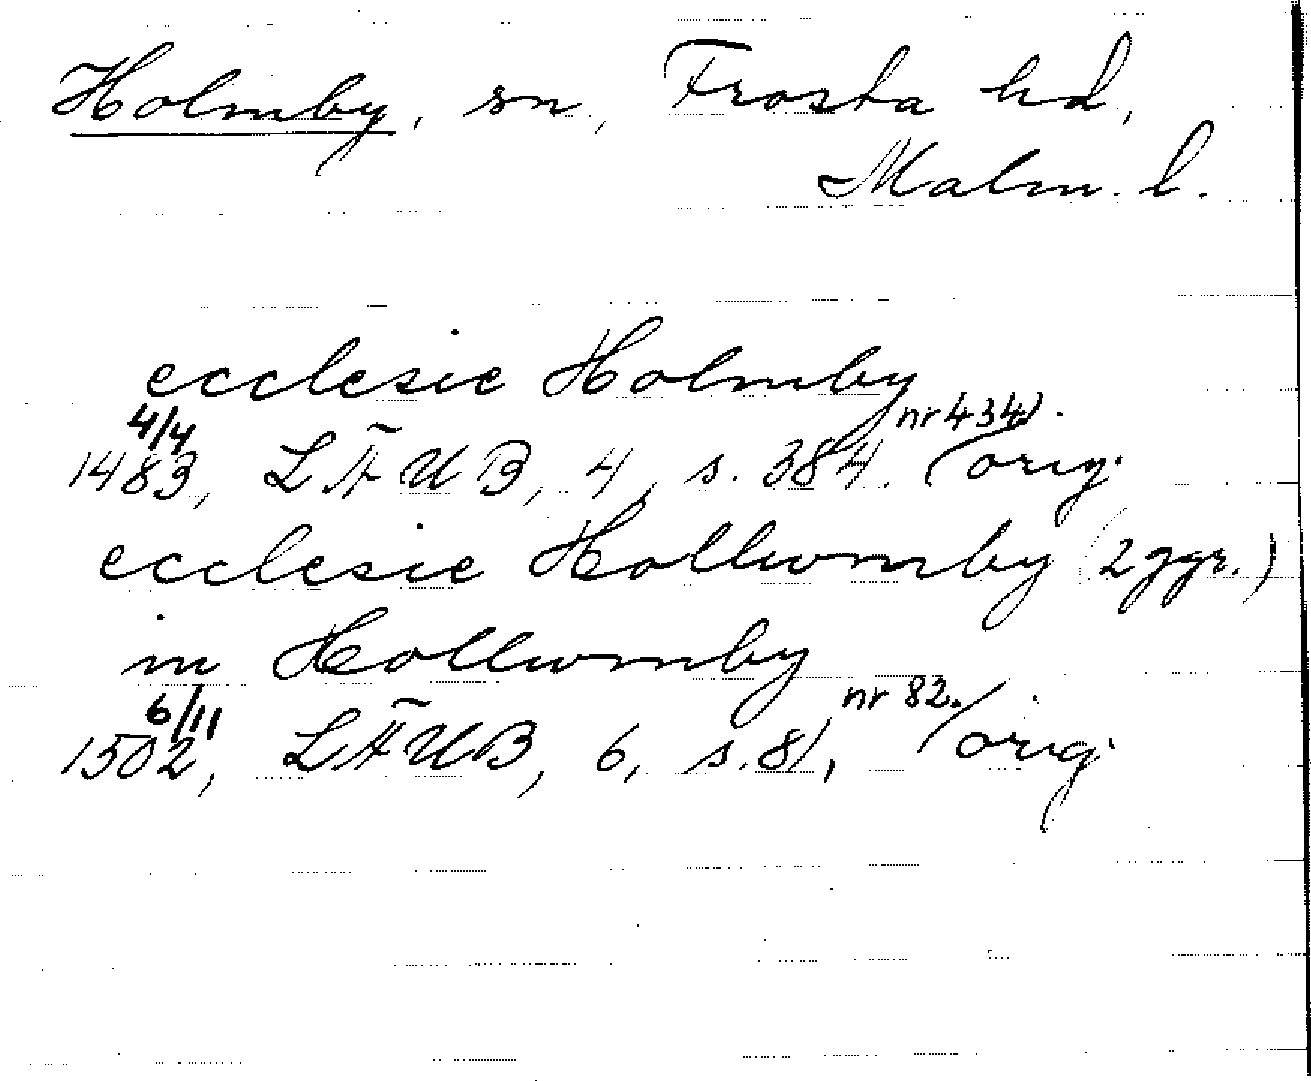 Holmby, sn, Frosta hd,
Malm. l.
ecclesie Holmby
4/4 nr 434).
1483, LÄUB, 4, s. 384. (orig.
ecclesie Hollwmby (2 ggr.)
in Hollwmby
6/11 nr 82.
1502, LÄUB, 6, s. 81, orig.